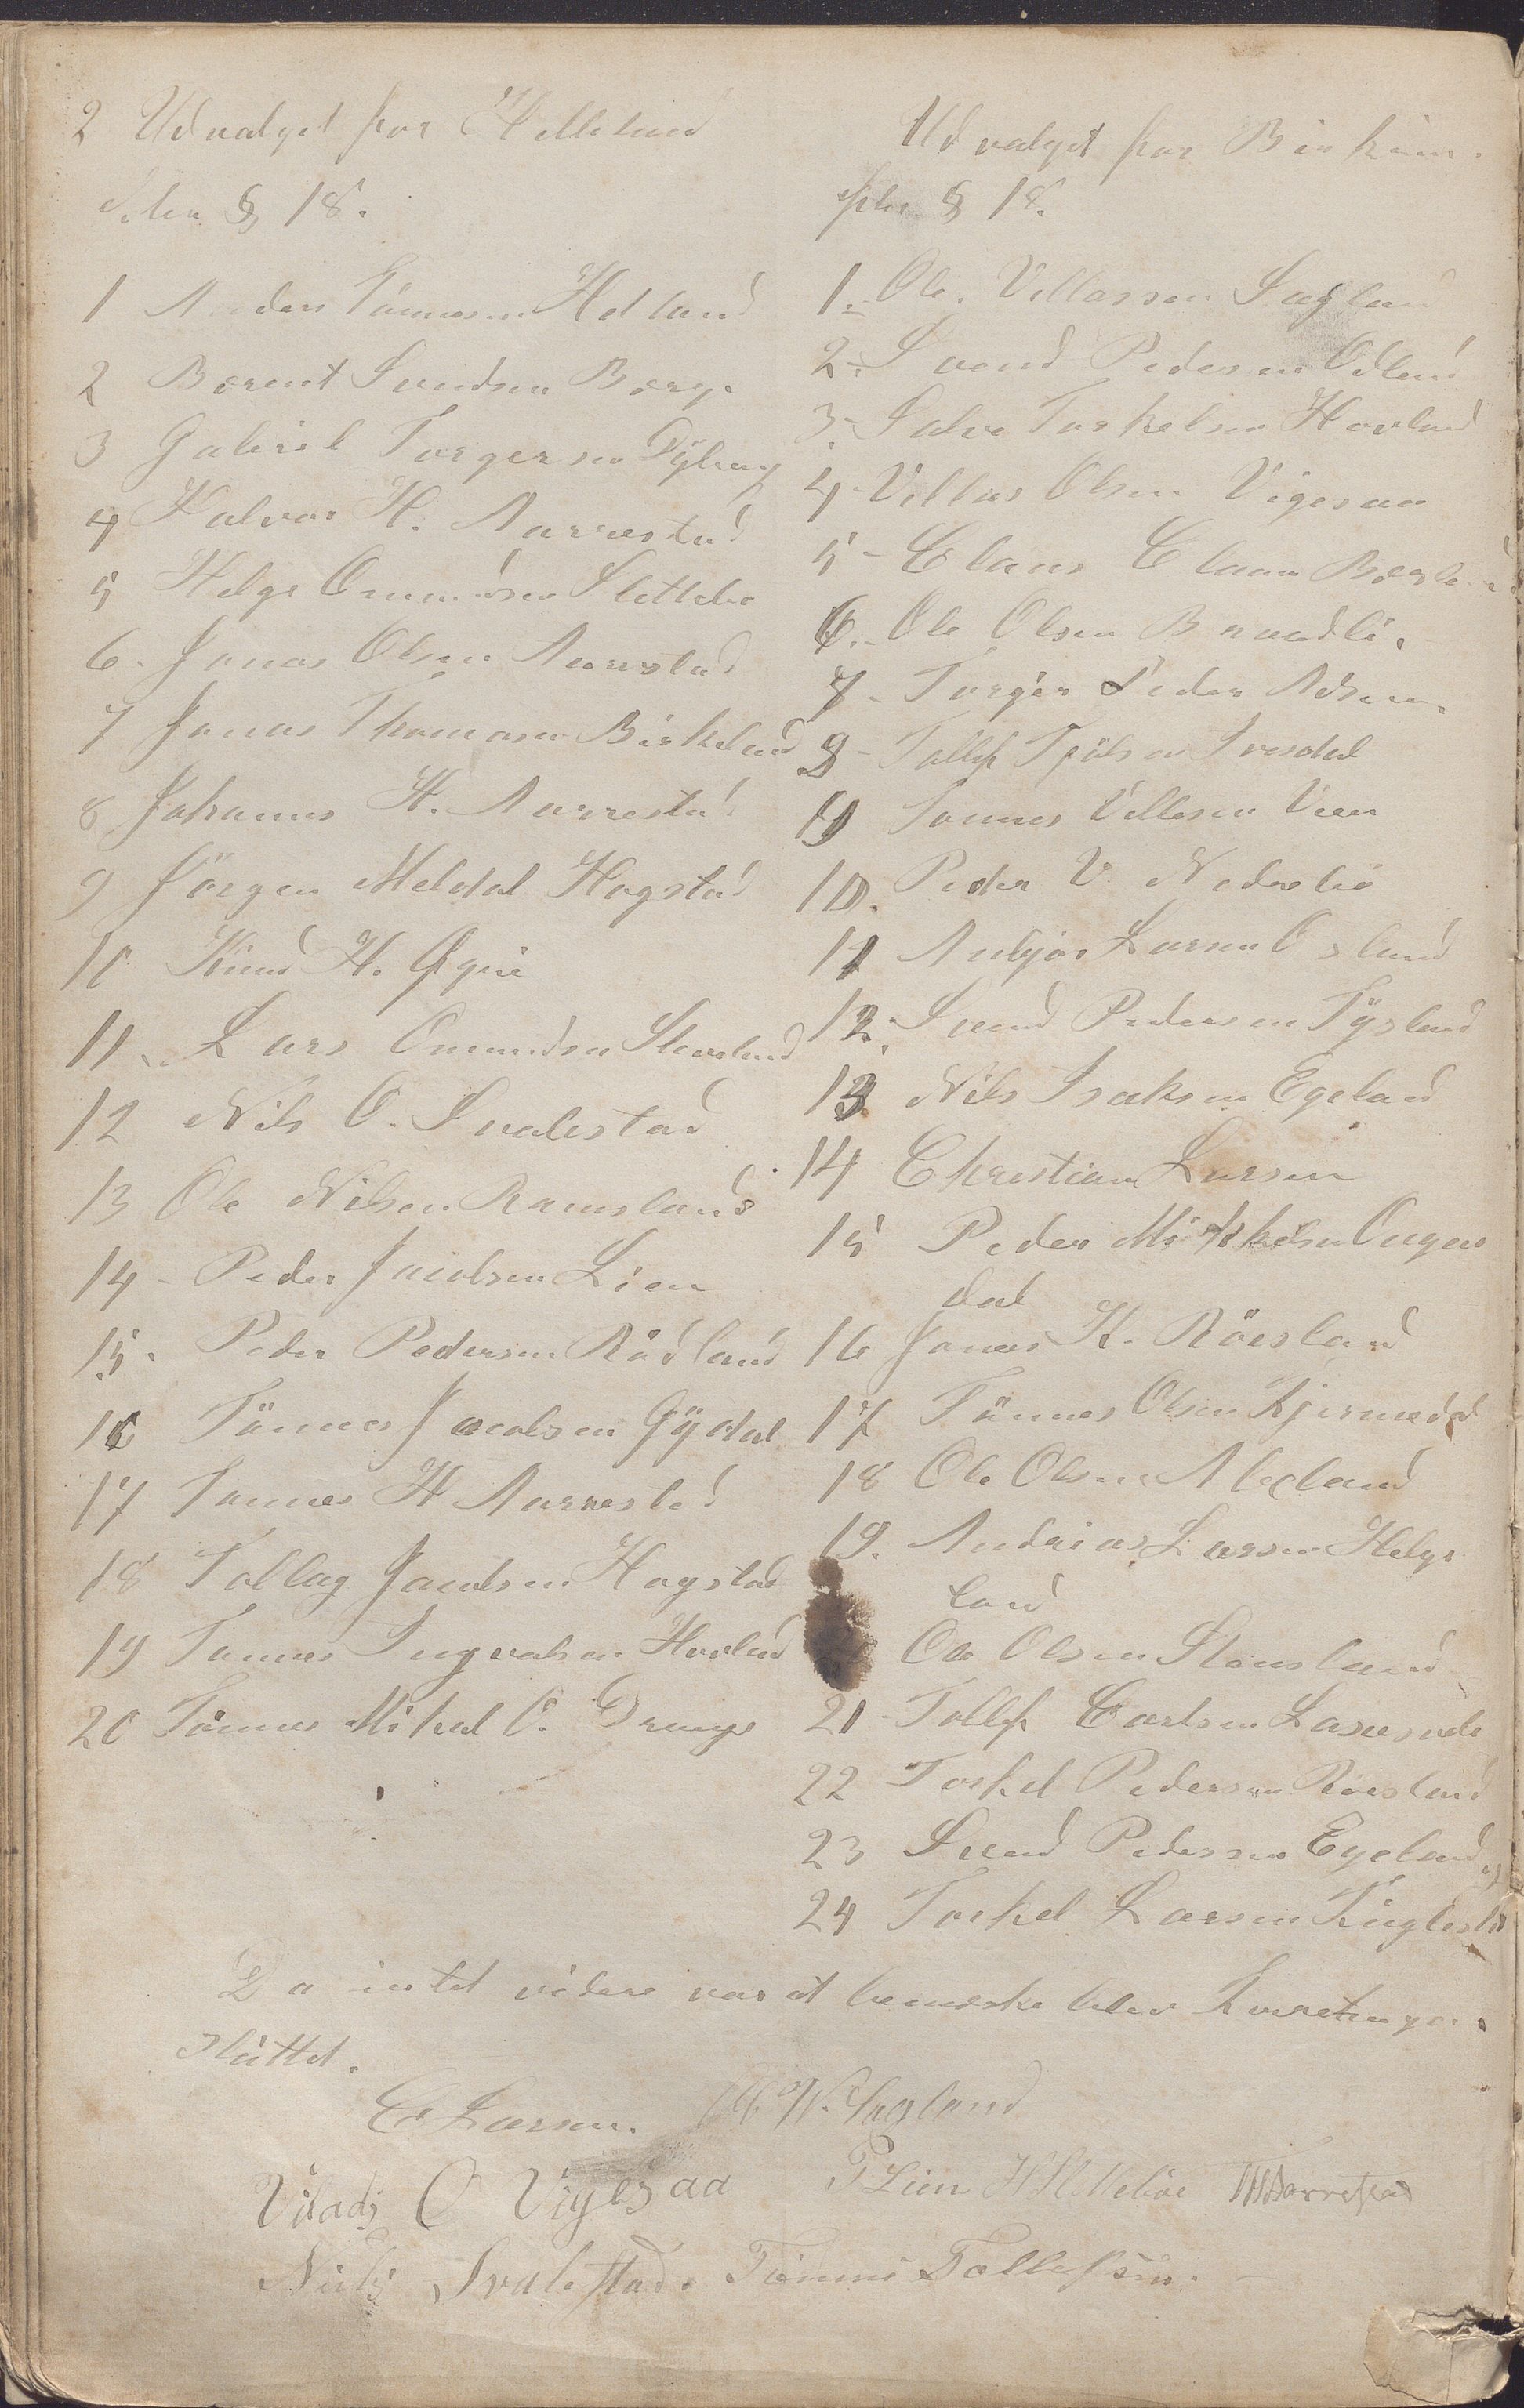 2 Udvalget for Helleland
§ 18.
1 Anders Tønnesen Hetland
2 Berent Svendsen Berge
3 Gabriel Torgersen
4 Halvor H. Aarrestad
5 Helge Ommundsen Slettebø
6. Jonas Olsen Aarrestad
7 Jonas Thomasen Birkeland
8 Johannes H. Aarrestad
9 Jörgen Meldal Hogstad
10 Knud H. Øgrei
11. Lars Omundsen Skarland
12 Nils O. Svalestad
13 Ole Nilsen Ramsland
14 - Peder Jacobsen Lien
15. Peder Pedersen Rødland
16 Tönnes Jacobsen Gÿdal
17 Tønnes H Aarrestad
18 Tollag Jacobsen Hogstad
19 Tønnes Ingvalsen Hovland
20 Tønnes Mikal O. Drange
Udvalget for Birkrim
§ 18.
1. Ole Villassen Sagland
2. Svend Pedersen Odland
3. Salve Torkelsen Hovland
4 - Villas Olsen Vigesaa
5 - Claus Clausen
6. - Ole Olsen Brandli.
7 - Torger Peder
8 - Tollef Tjølsen Ivesdal
9 Tønnes Villasen Veen
10. Peder V. Nedrebø
11 Asbjør Larsen
12. Svend Pedersen Tÿsland
13 Nils Isaksen Egeland
14 Christian Larsen
15 Peder Mikkelsen Ougen
dal
16 Jonas K. Röesland
17 Tønnes Olsen Kjermedal
18 Ole Olsen
19. Andreas Larsen Helge
land
Ole Olsen Stensland
21 - Tollef Carlsen
22 Torkel Pedersen Röesland
23 Svend Pedersen Egeland og
24 Torkel Larsen
Da intet videre var at bemerke blev Forretningen
sluttet.
C Larsen. W. Sagland
Viladſ O Vigesaa P Lien H Slettebøe THAarrestad
Nielſ Svaleſtad. Tönnes Tollefsen.